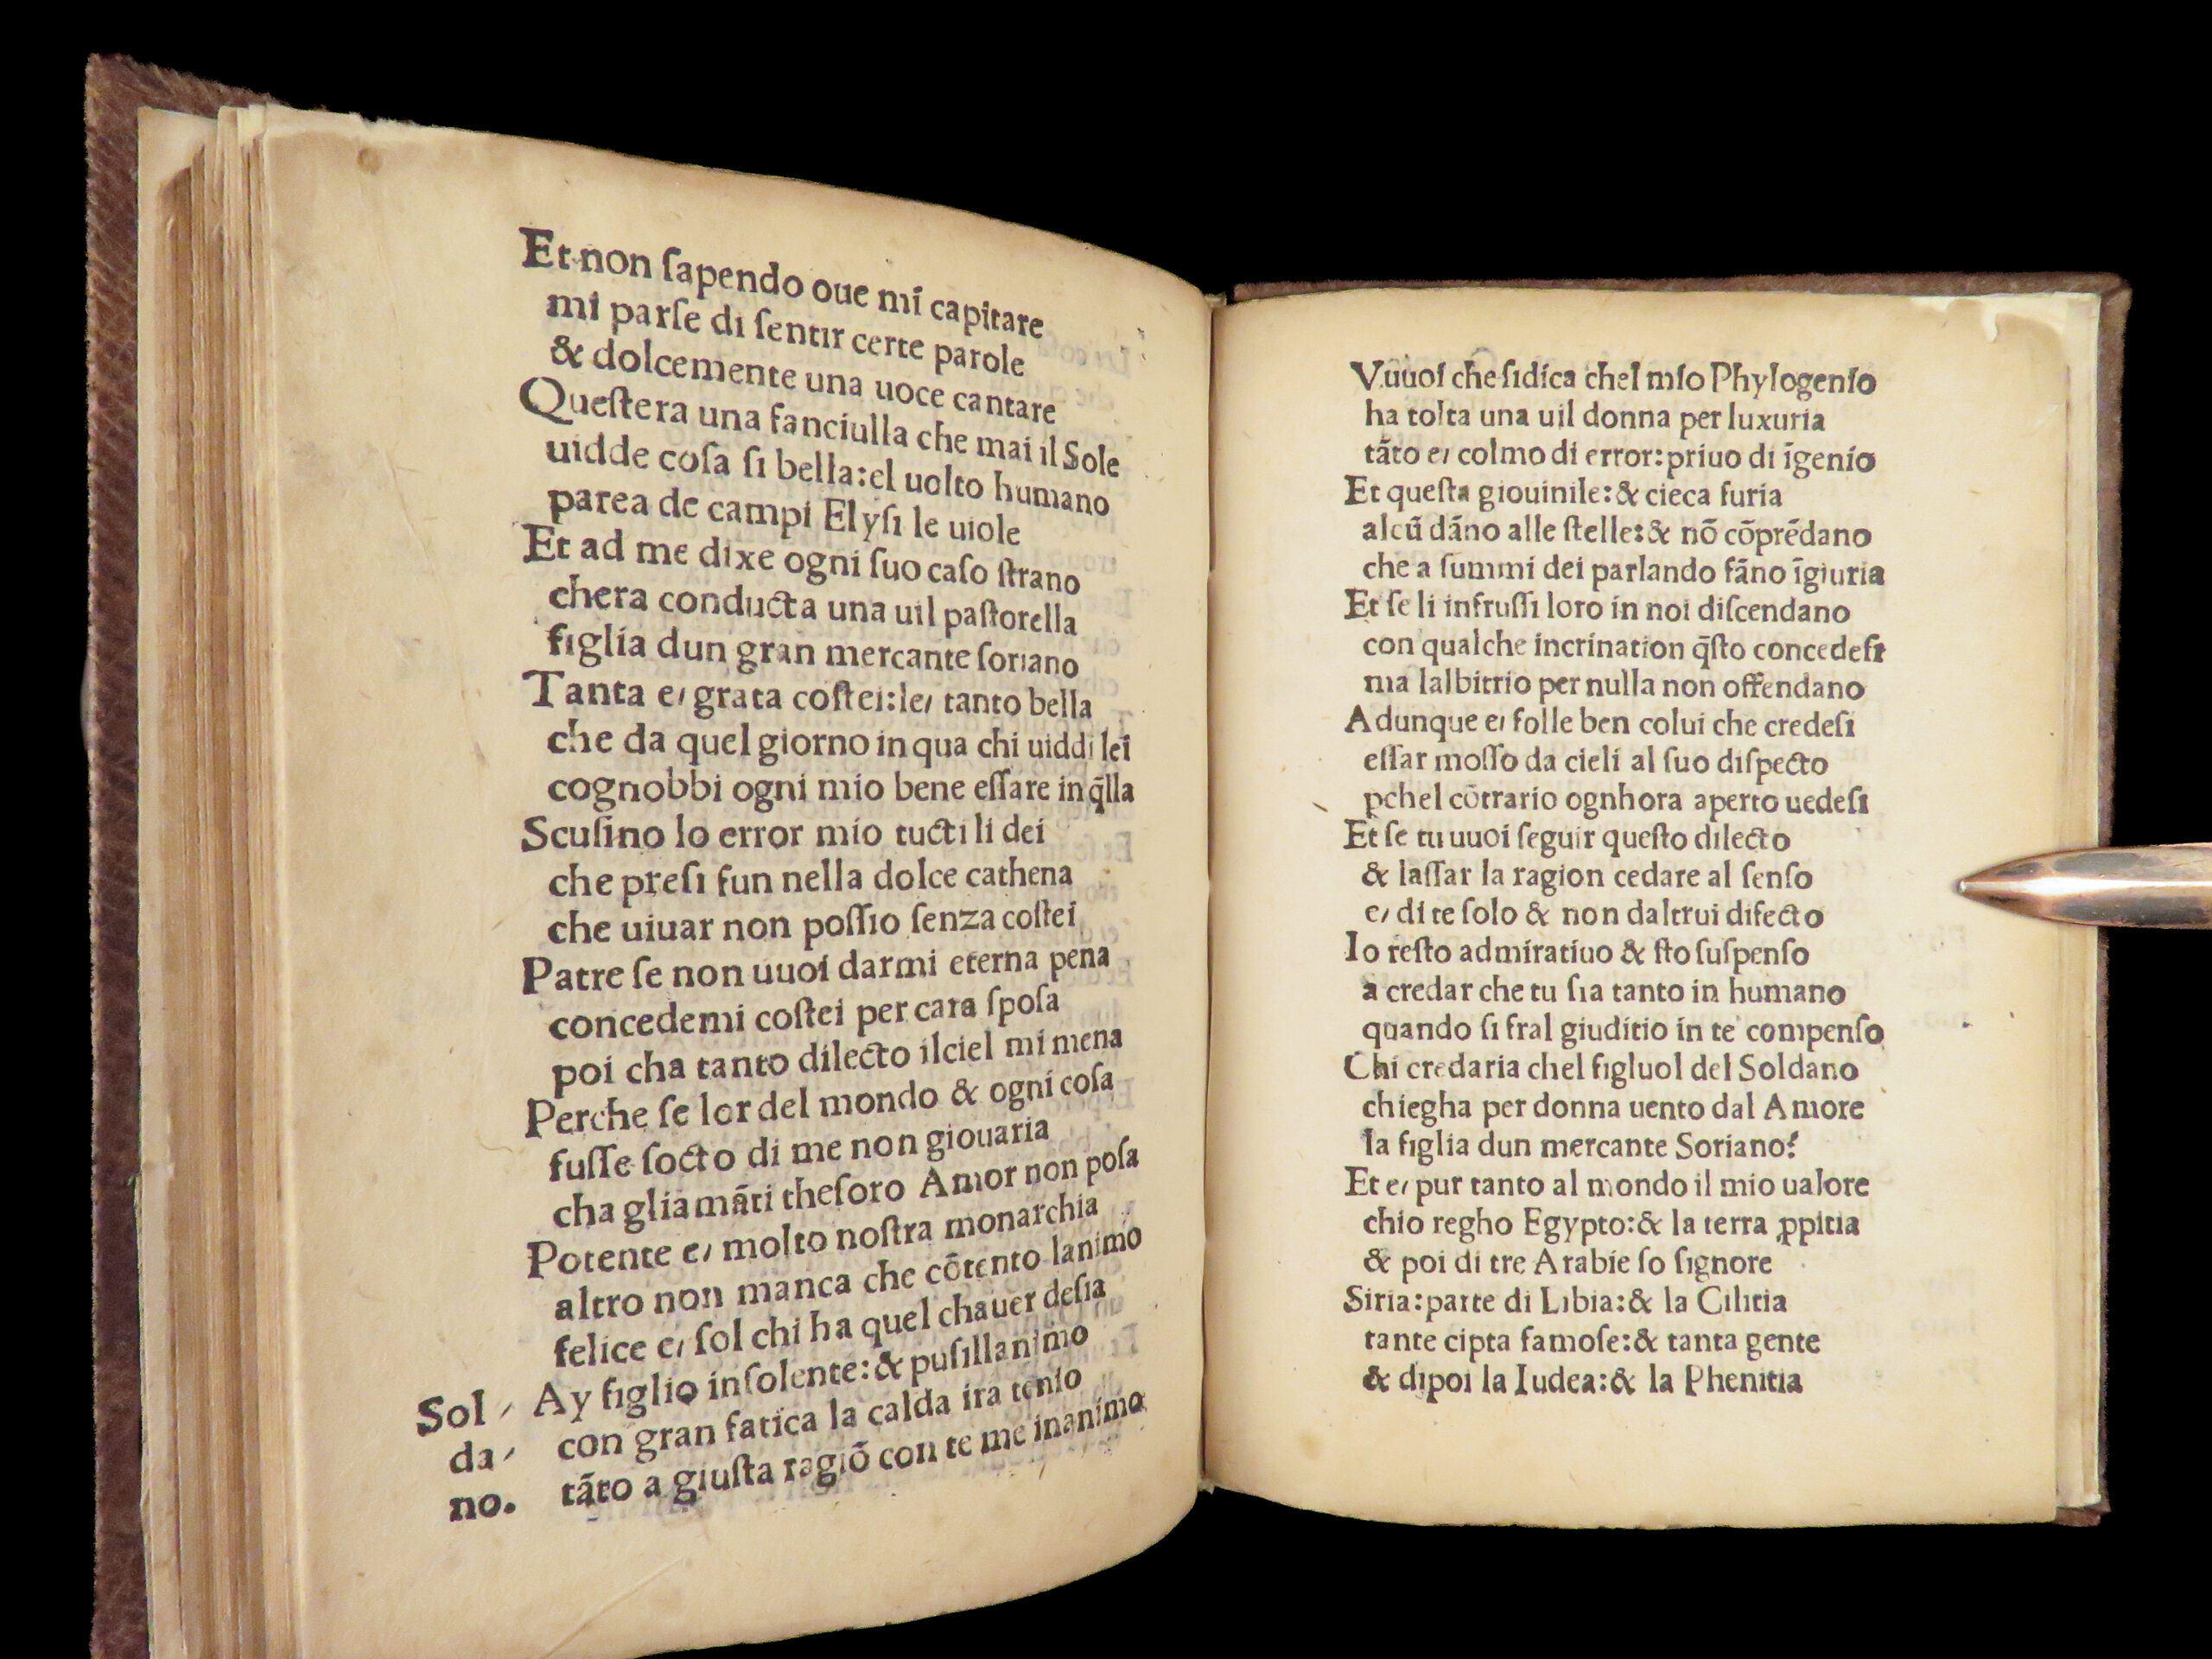 Et non ſapendo oue mi capitare
mi parſe di ſentir certe parole
& dolcemente una uoce cantare
Queſtera una fanciulla che mai il Sole
uidde coſa ſi bella:el uolto humano
parea de campi Elyſi le uiole
Et ad me dixe ogni ſuo caſo ſtrano
chera conducta una uil paſtorella
figlia dun gran mercante ſoriano
Tanta e, grata coſtei:le, tanto bella
che da quel giorno in qua chi uiddi lei
cognobbi ogni mio bene eſſare in q̄lla
Scuſino lo error mio tucti li dei
che preſi fun nella dolce cathena
che uiuar non poſſio ſenza coſtei
Patre ſe non uuoi darmi eterna pena
concedemi coſtei per cara ſpoſa
poi cha tanto dilecto ilciel mi mena
Perche ſe lor del mondo & ogni coſa
fuſſe ſocto di me non giouaria
cha gliamāti theſoro Amor non poſa
Potente e, molto noſtra monarchia
altro non manca che cōtento lanimo
felice e, ſol chi ha quel chauer deſia
Sol - Ay figlio inſolente:& puſillanimo
da - con gran fatica la calda ira tenio
no. tāto a giuſta ragiō con te me inanimo
Vuuoi che ſidica chel mio Phylogenio
ha tolta una uil donna per luxuria
tāto e, colmo di error:priuo di īgenio
Et queſta giouinile:& cieca furia
alcū dāno alle ſtelle:& nō cōprēdano
che a ſummi dei parlando fāno īgiuria
Et ſe li infruſſi loro in noi diſcendano
con qualche incrination q̄ſto concedeſi
ma lalbitrio per nulla non offendano
Adunque e, folle ben colui che credeſi
eſſar moſſo da cieli al ſuo diſpecto
pchel cōtrario ognhora aperto uedeſi
Et ſe tu uuoi ſeguir queſto dilecto
& laſſar la ragion cedare al ſenſo
e, di te ſolo & non daltrui difecto
Io reſto admiratiuo & ſto ſuſpenſo
a credar che tu ſia tanto in humano
quando ſi fral giuditio in te compenſo
Chi credaria chel figluol del Soldano
chiegha per donna uento dal Amore
la figlia dun mercante Soriano?
Et e, pur tanto al mondo il mio ualore
chio regho Egypto:& la terra ꝓpitia
& poi di tre Arabie ſo ſignore
Siria:parte di Libia:& la Cilitia
tante cipta famoſe:& tanta gente
& dipoi la Iudea:& la Phenitia